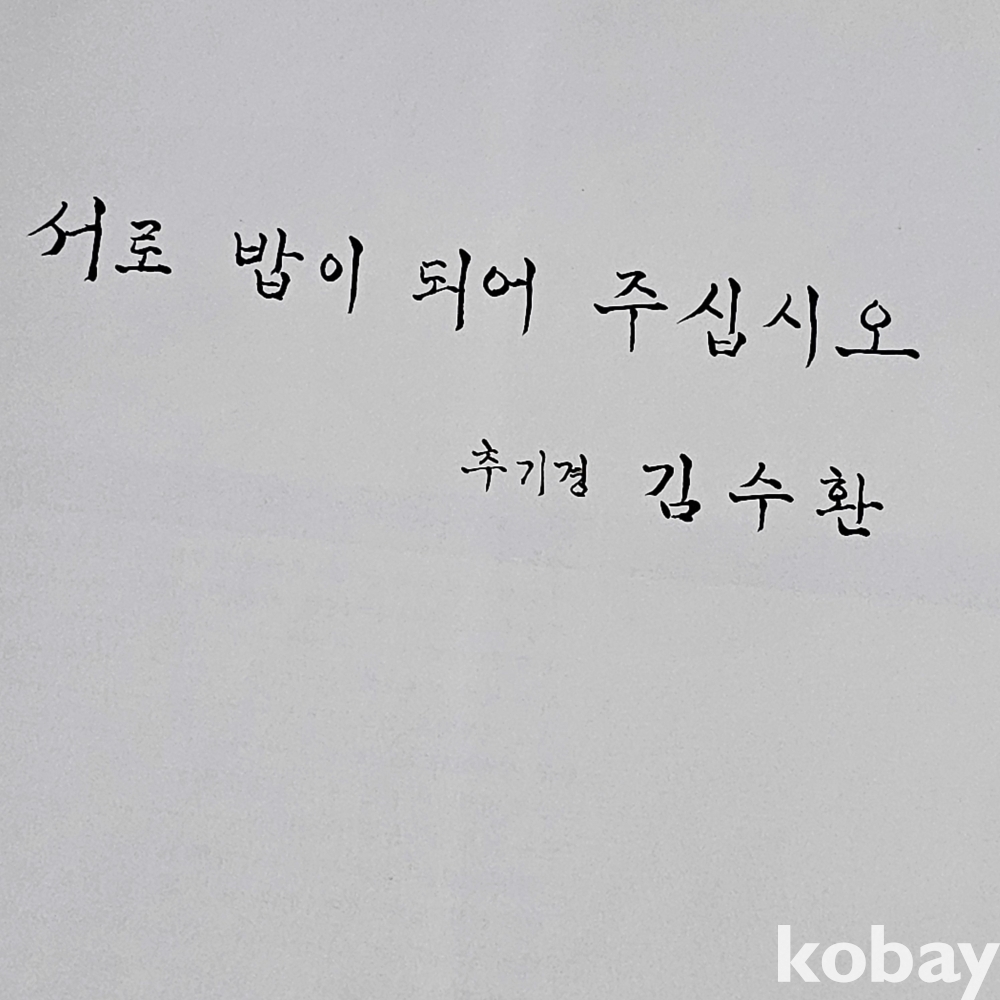 서로 밥이 되어 주십시오
추기경 김수환
kobay